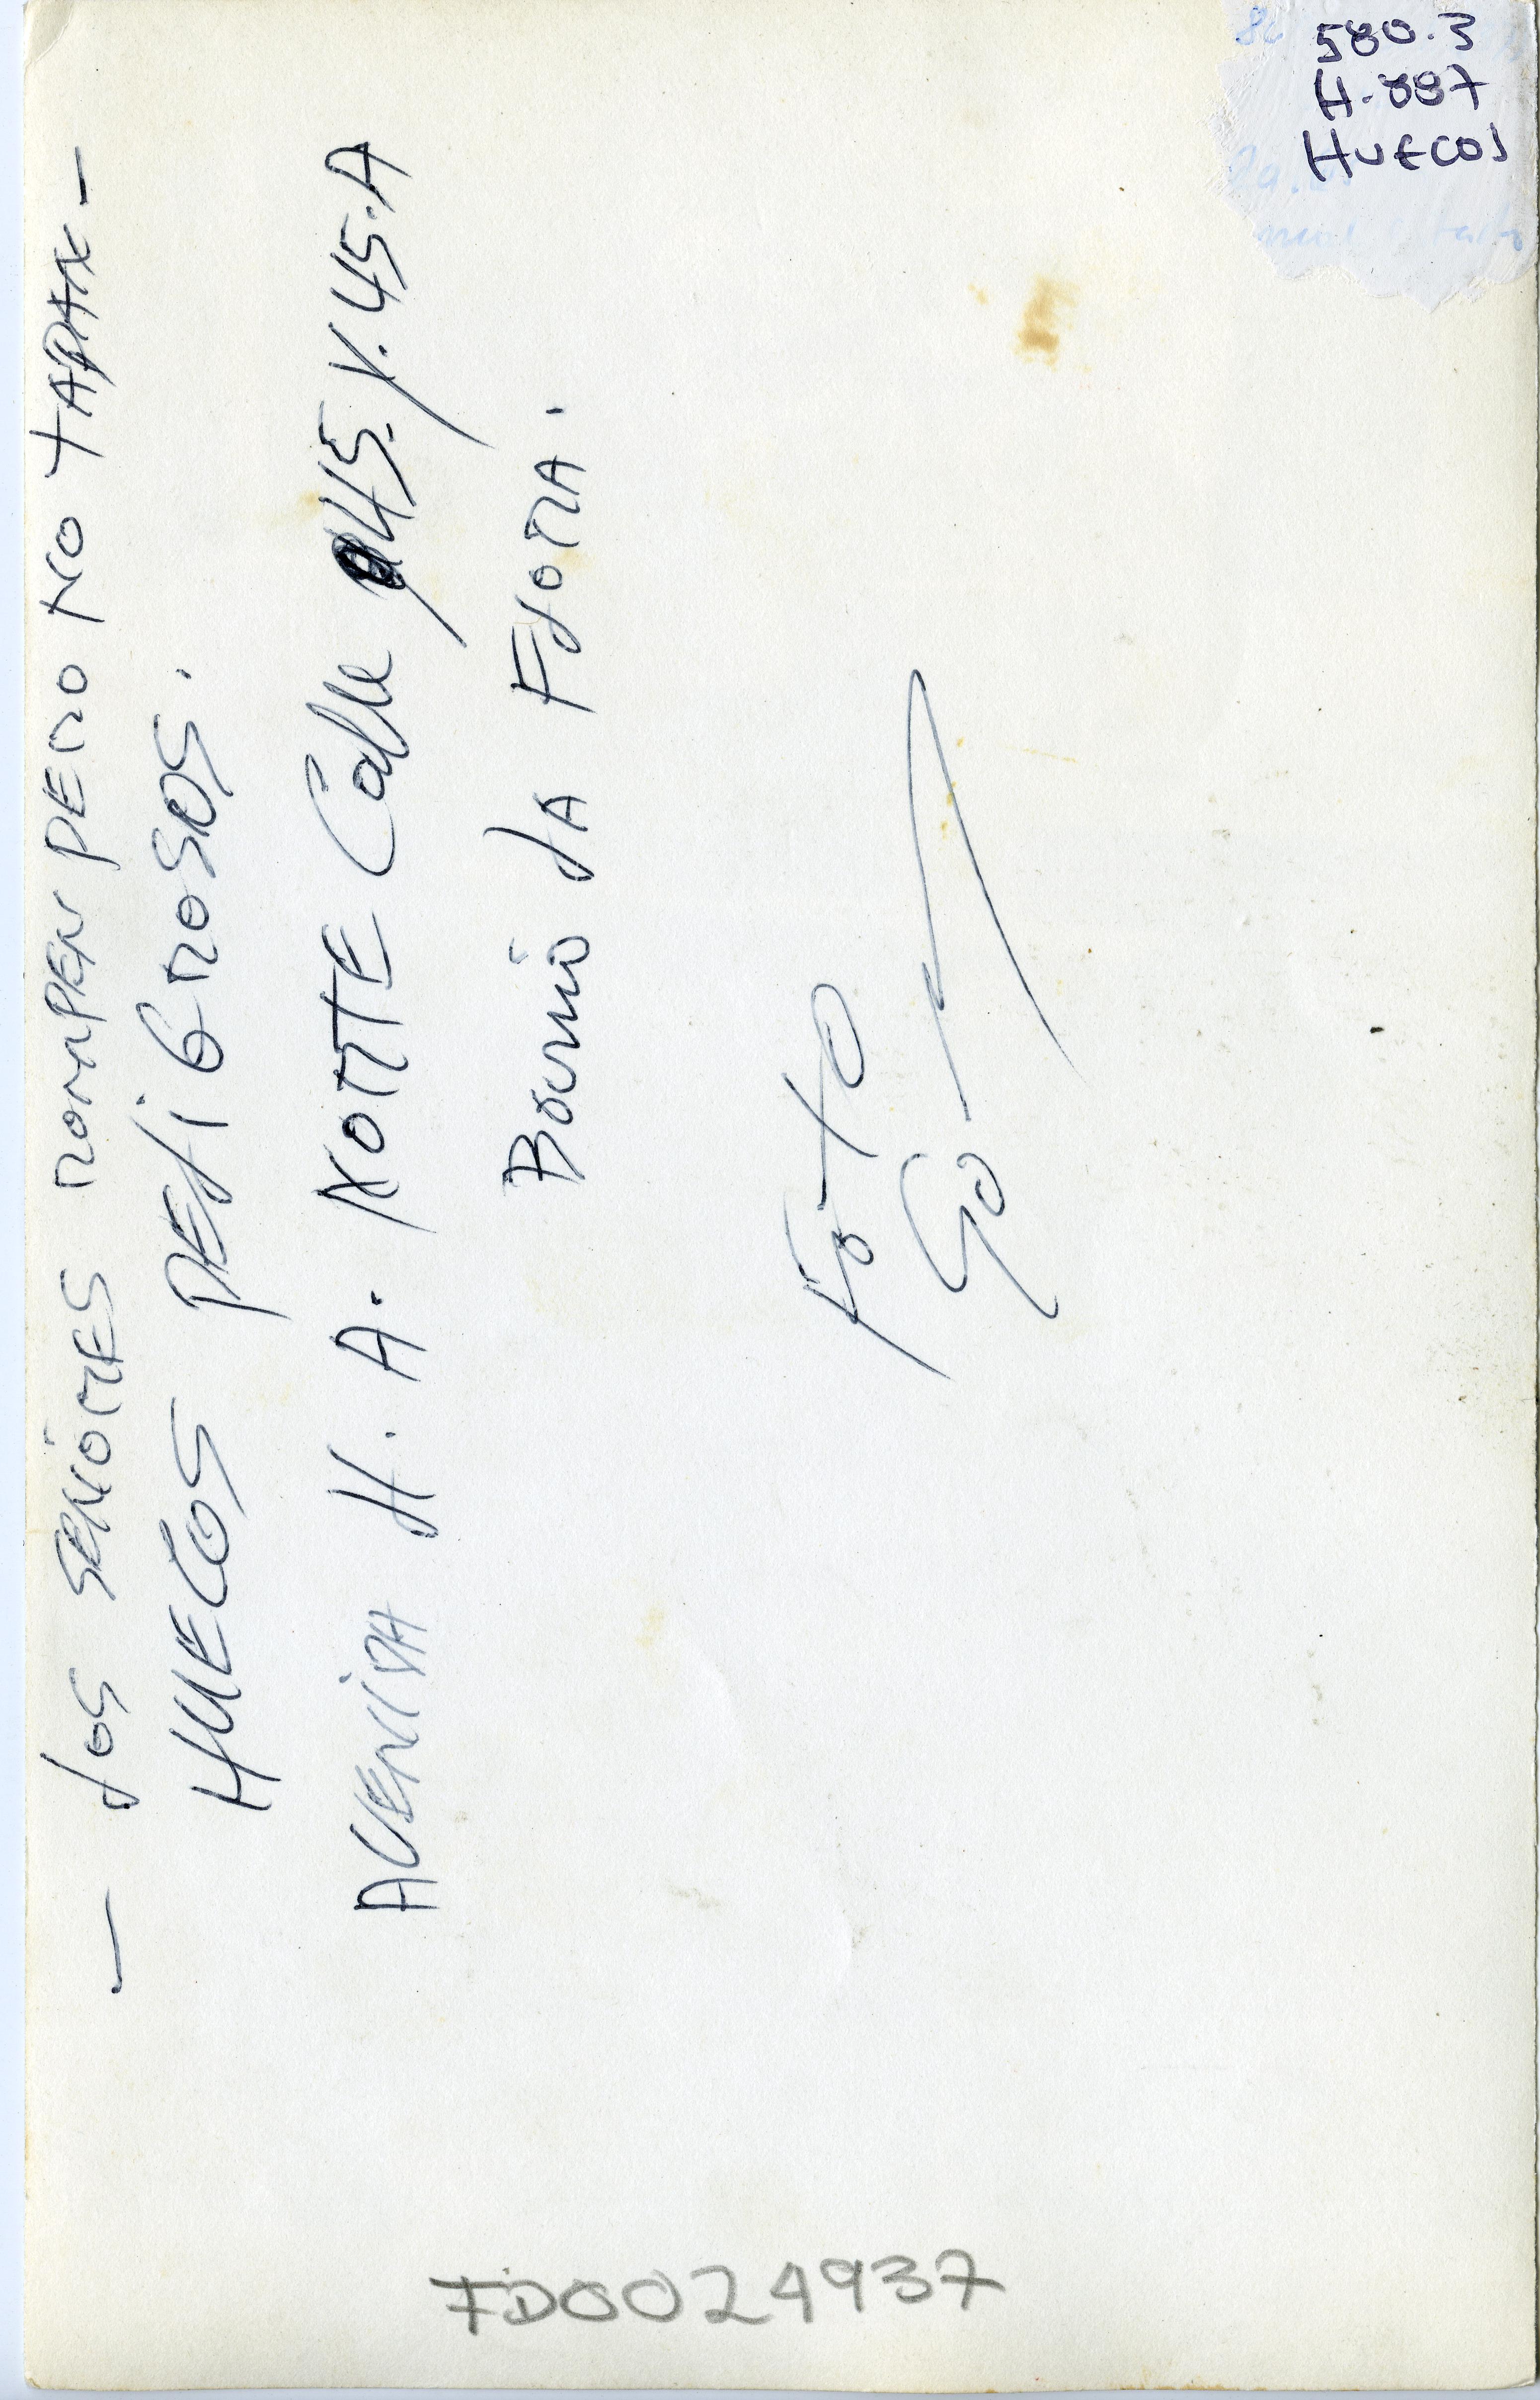 580.3
H-887
HUECOS
— LOS SEÑORES ROMPEN PERO NO TAPAN —
HUECOS PELIGROSOS.
AVENIDA H. A. NORTE Calle 45. Y. 45. A
Barrio LA FLORA.
Foto
FD0024937